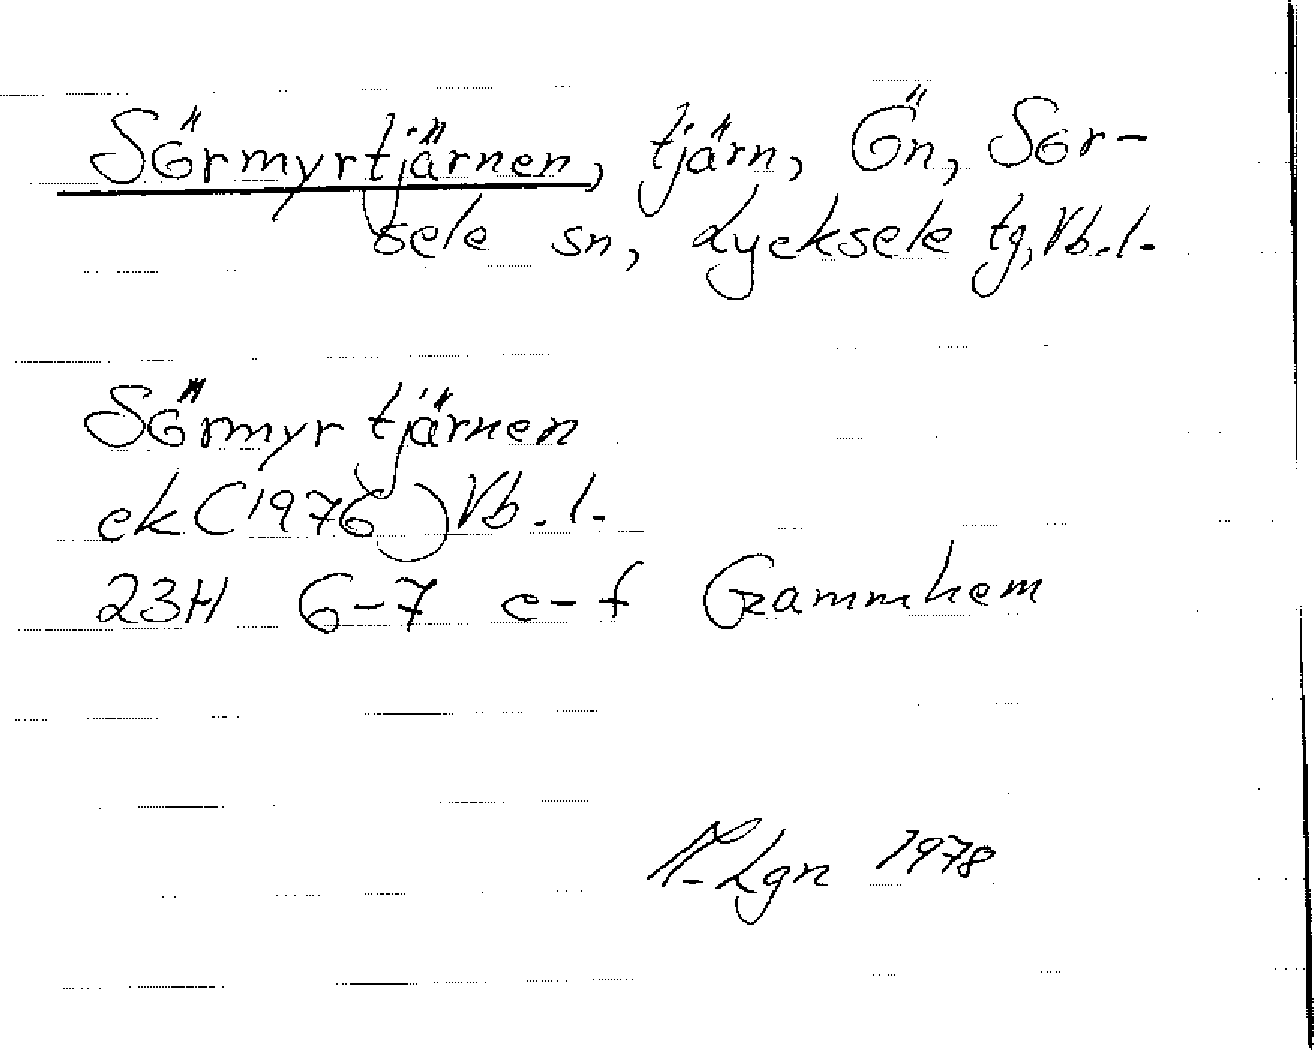 Sörmyrtjärnen, tjärn, Ön, Sor-
sele sn, Lycksele tg, Vb.l.
Sörmyrtjärnen
ek (1976) Vb.l.
23H 6-7 e-f Grannäs
Lgn 1978